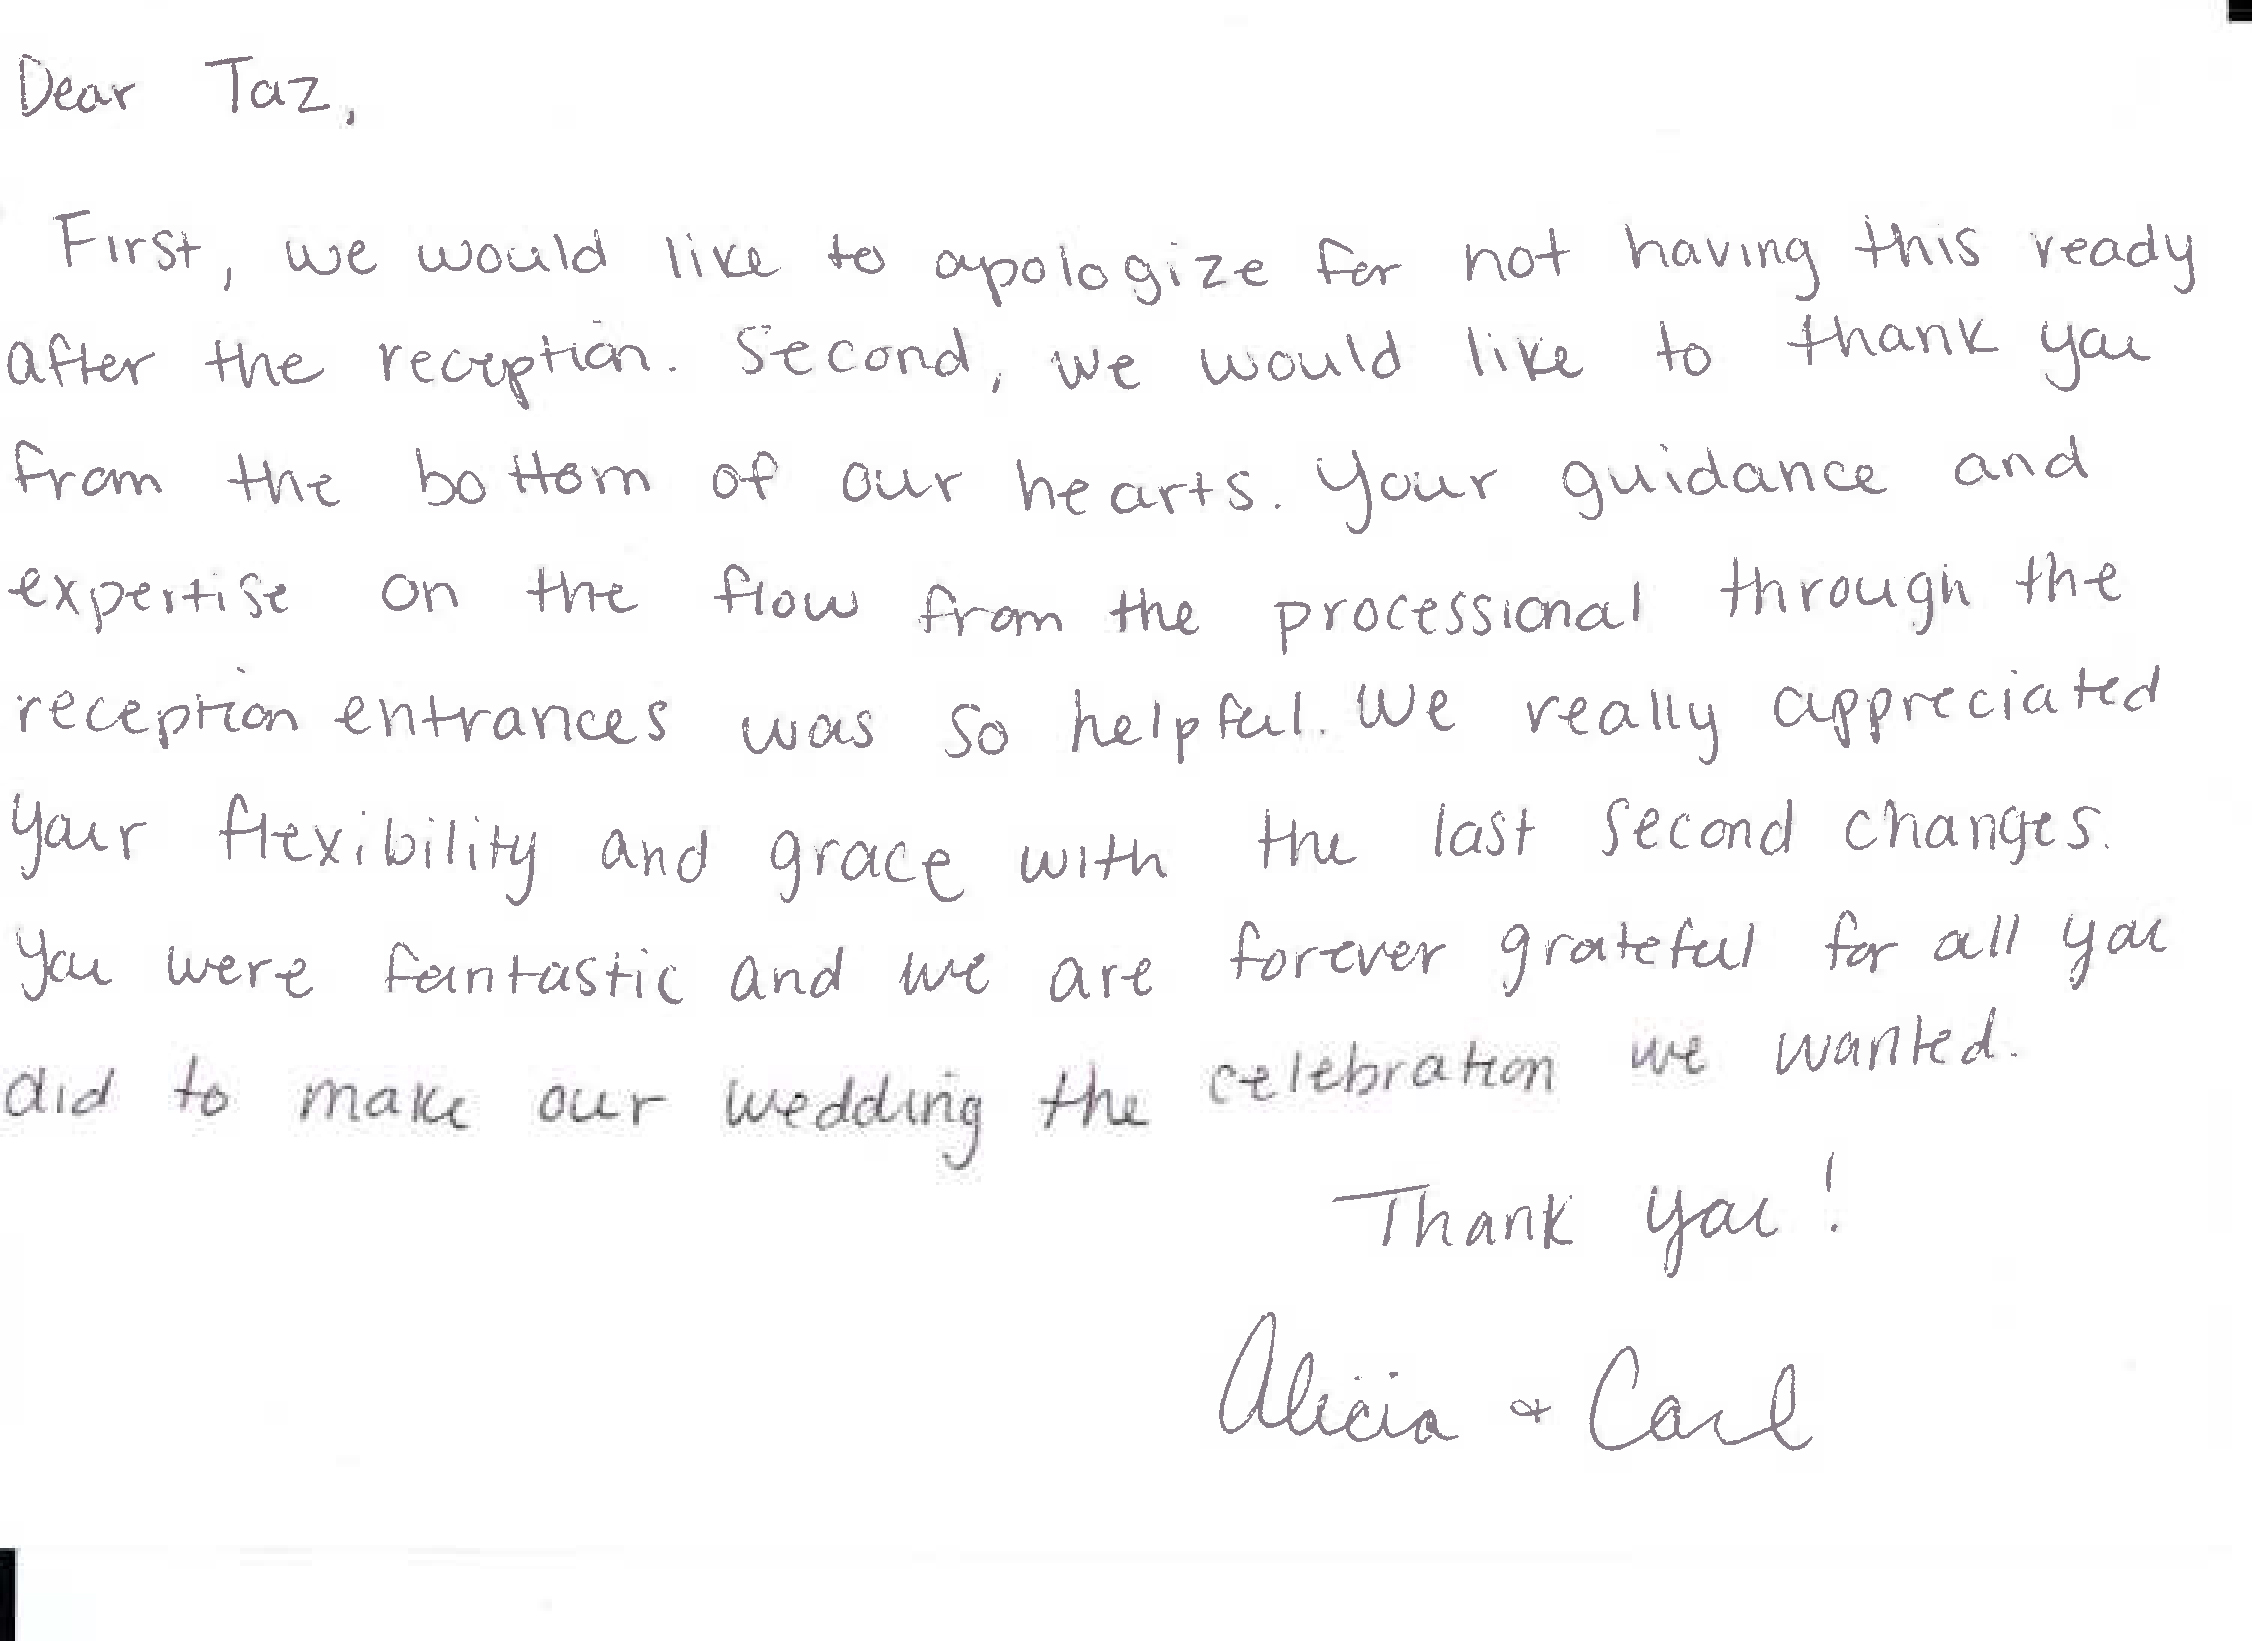 Dear Taz,
First, we would like to apologize for not having this ready
after the reception. Second, we would like to thank you
from the bottom of our hearts. Your guidance and
expertise on the flow from the processional through the
reception entrances was so helpful. We really appreciated
your flexibility and grace with the last second changes.
You were fantastic and we are forever grateful for all you
did to make our wedding the celebration we wanted.
Thank you!
Alicia + Carl